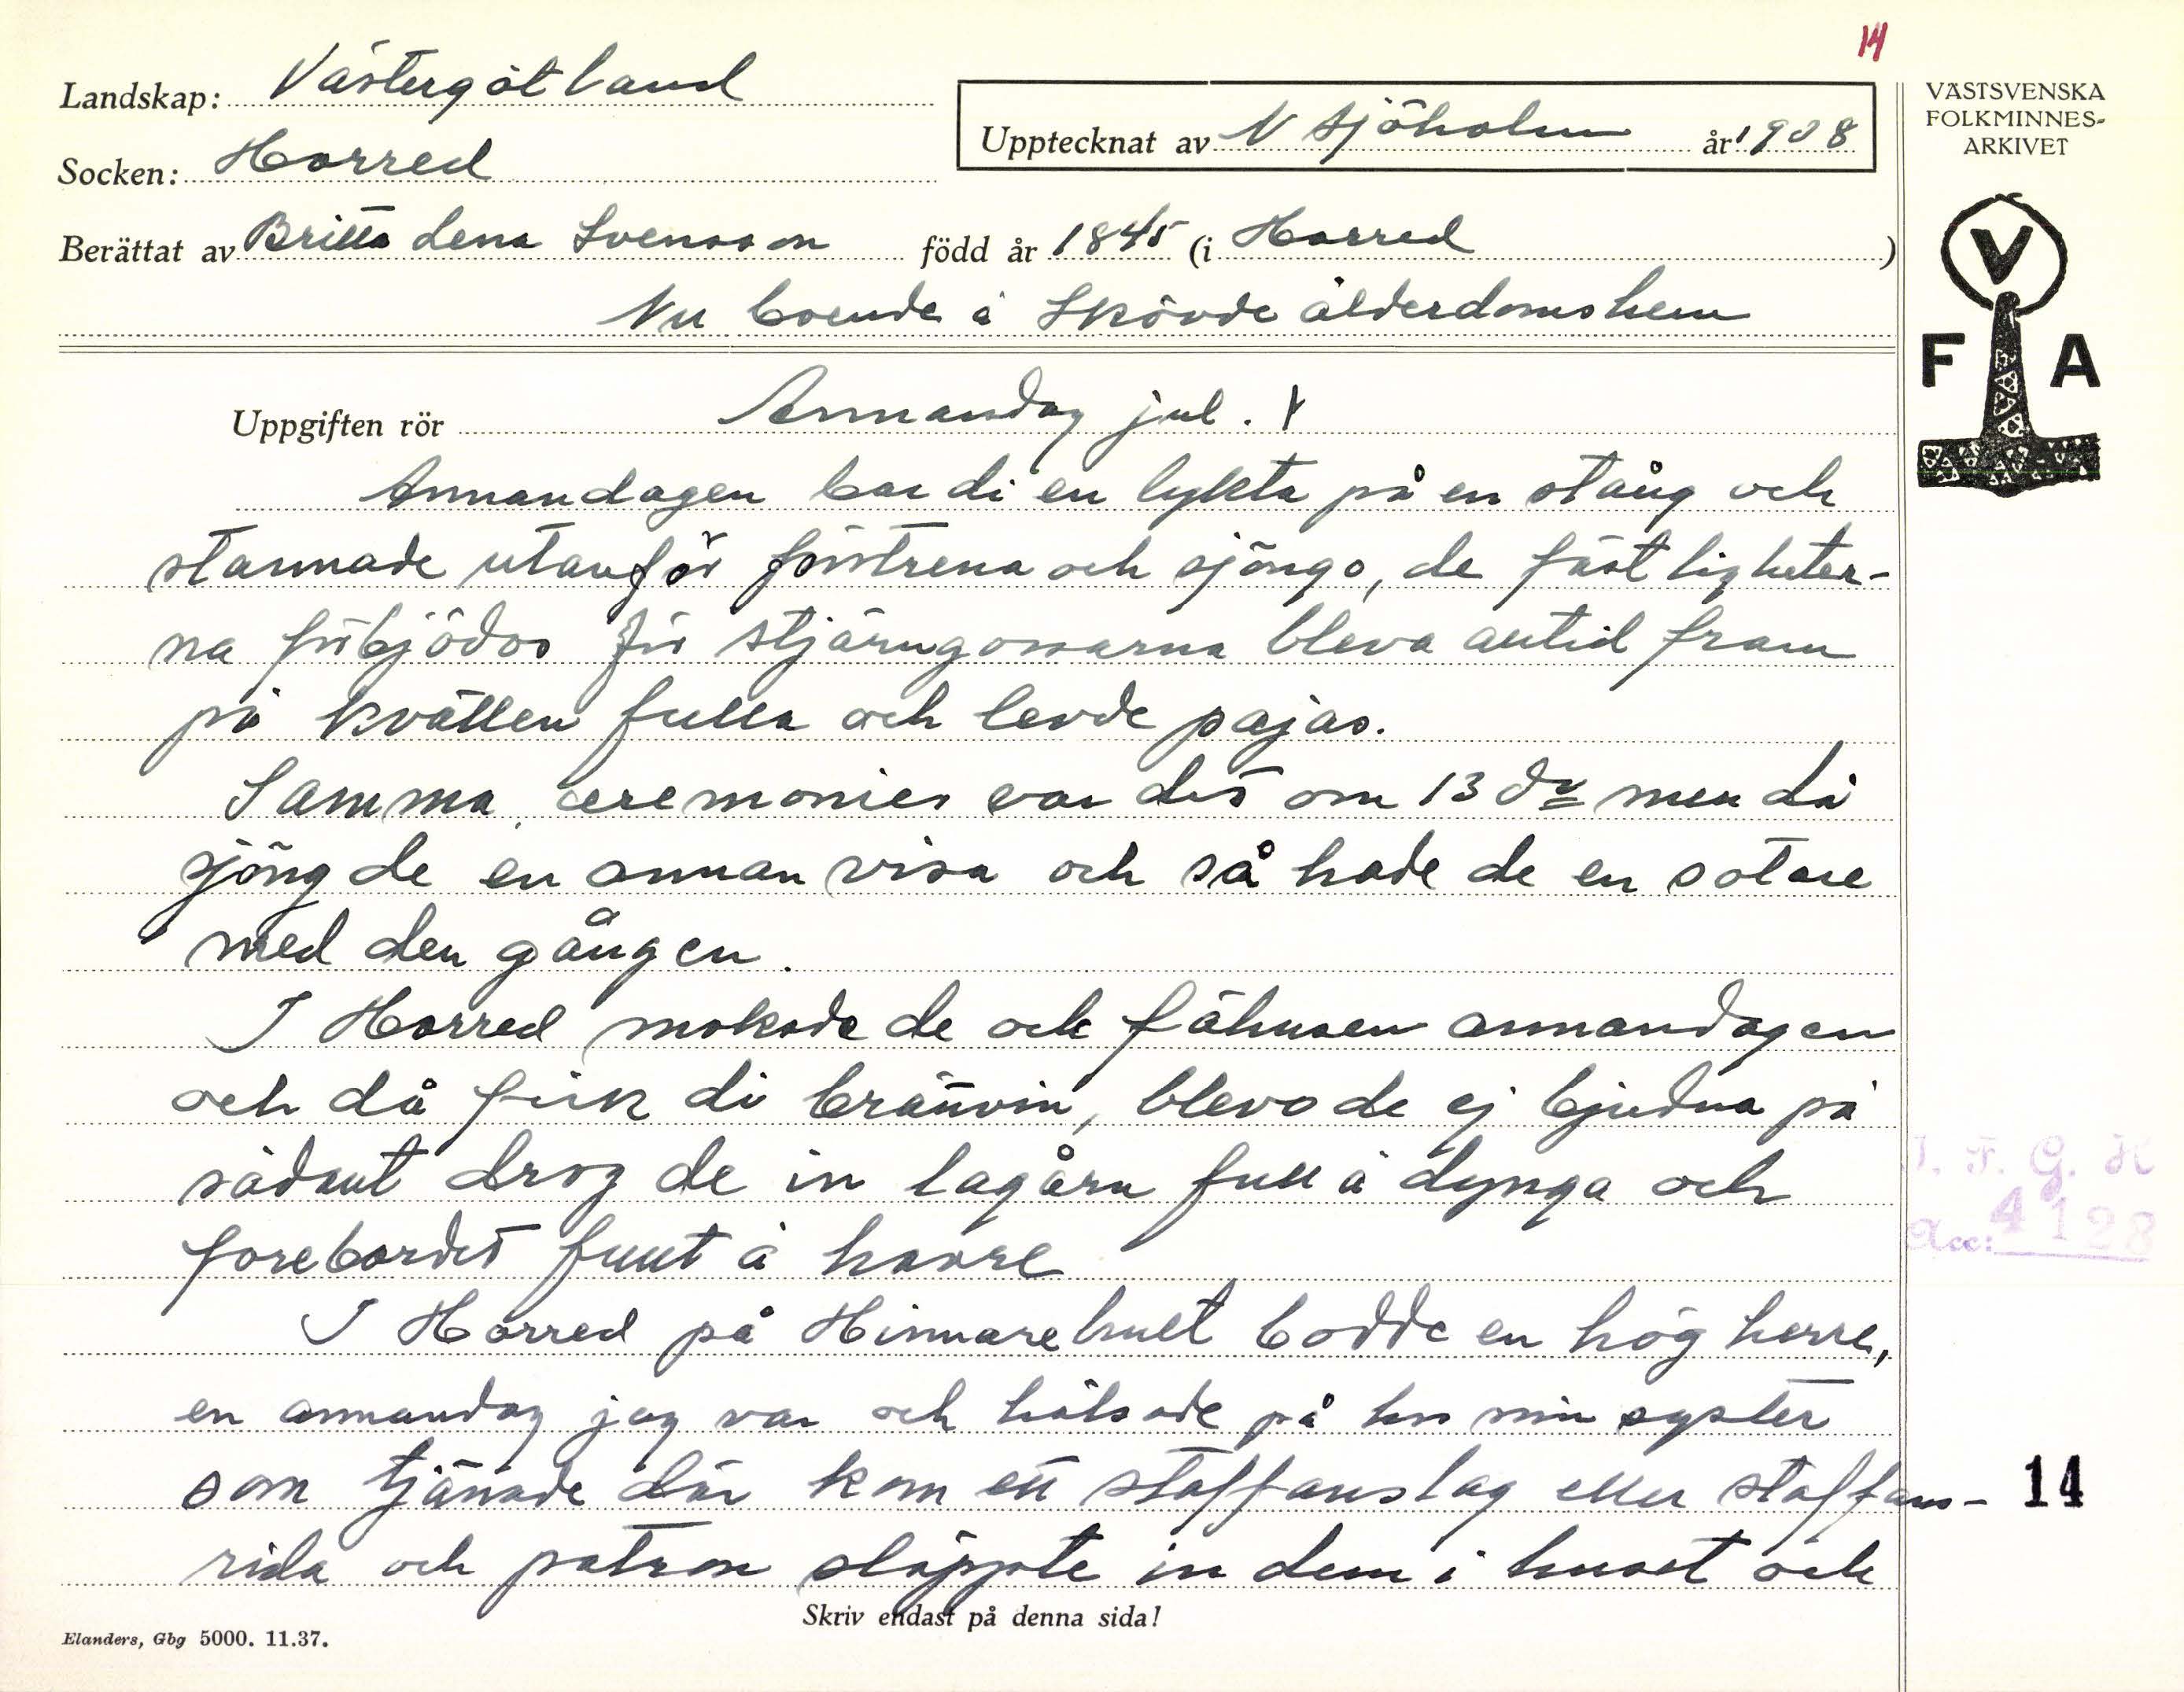 14
Landskap: Västergötland
Socken: Horred
Upptecknat av N Sjöholm år 1908
Berättat av Britta Lena Svensson född år 1845 (i Horred)
Nu boende å Skövde ålderdomshem
VÄSTSVENSKA
FOLKMINNES-
ARKIVET
V
F A
Uppgiften rör Annandag jul.
Annandagen bar di en lykta på en stång och
stannade utanför fönstrena och sjöngo, de fästligheter-
na förbjödos för stjärngossarna bleva alltid fram
på kvällen fulla och levde pajas.
Samma ceremonier var det om 13 dg men då
sjöng de en annan visa och så hade de en sotare
med den gången.
I Horred mokade de ock fähusen annandagen
och då fick di brännvin, blevo de ej bjudna på
sådant drog de in lagårn full å dynga och
forebordet fullt å havre
I Horred på bodde en hög herre,
en annandag jag var och hälsade på hos min syster
som tjänade där kom ett staffanslag eller staffans-
rida och patron släppte in dem i huset och
Skriv endast på denna sida!
Elanders, Gbg 5000. 11.37.
I. F. G. H
Acc: 4128
14